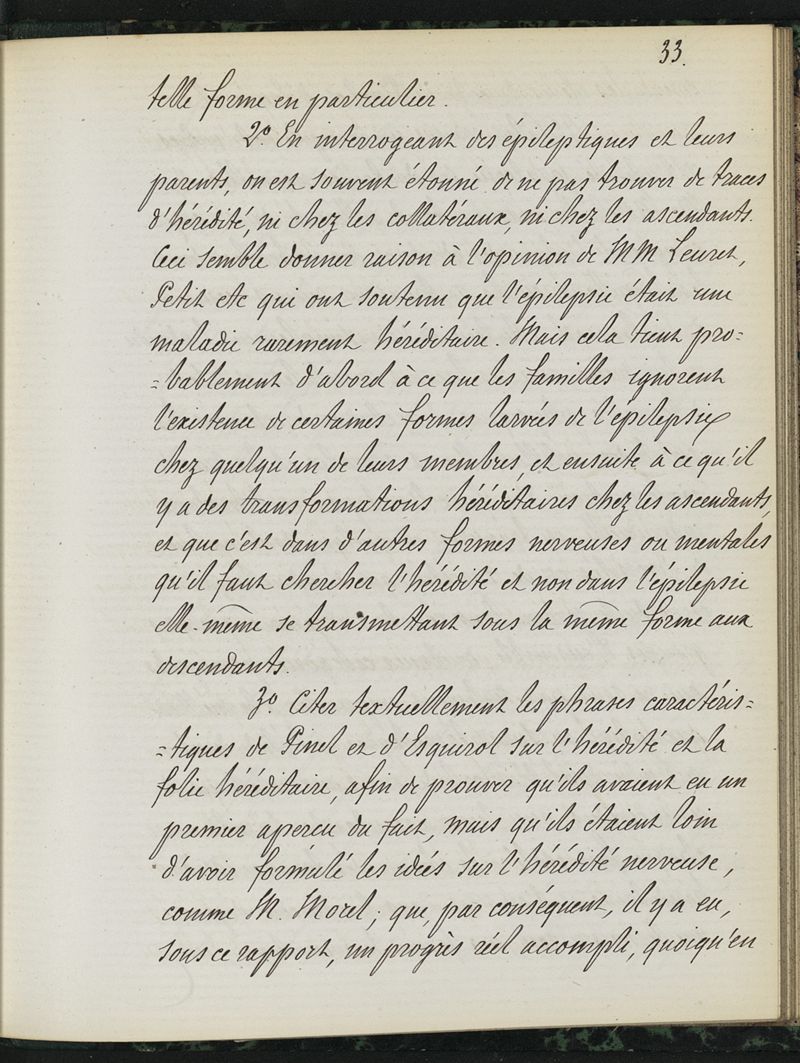 33.
telle forme en particulier.
2º. En interrogeant des épileptiques et leurs
parents, on est souvent étonné de ne pas trouver de traces
d'hérédité, ni chez les collatéraux, ni chez les ascendants.
Ceci semble donner raison à l'opinion de MM Leuret,
Petit etc qui ont soutenu que l'épilepsie était une
maladie rarement héréditaire. Mais cela tient pro=
=bablement d'abord à ce que les familles ignorent
l'existence de certaines formes larvées de l'épilepsie
chez quelqu'un de leurs membres, et ensuite à ce qu'il
y a des transformations héréditaires chez les ascendants,
et que c'est dans d'autres formes nerveuses ou mentales
qu'il faut chercher l'hérédité et non dans l'épilepsie
elle-même se transmettant sous la même forme aux
descendants.
3º. Citer textuellement les phrases caractéris=
=tiques de Pinel et d'Esquirol sur l'hérédité et la
folie héréditaire, afin de prouver qu'ils avaient eu un
premier apercu du fait, mais qu'ils étaient loin
d'avoir formulé les idées sur l'hérédité nerveuse,
comme M. Morel; que, par conséquent, il y a eu,
sous ce rapport, un progrès réel accompli, quoiqu'en